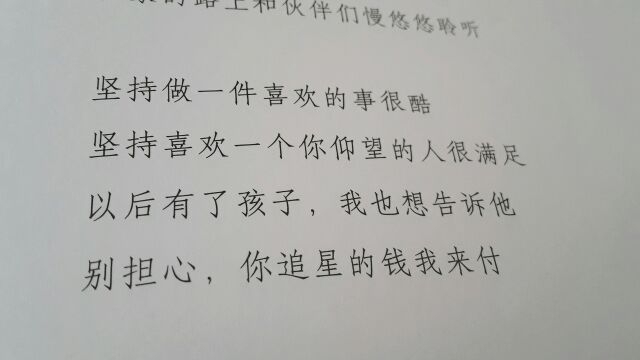 的路上和伙伴们慢悠悠聆听
坚持做一件喜欢的事很酷
坚持喜欢一个你仰望的人很满足
以后有了孩子，我也想告诉他
别担心，你追星的钱我来付